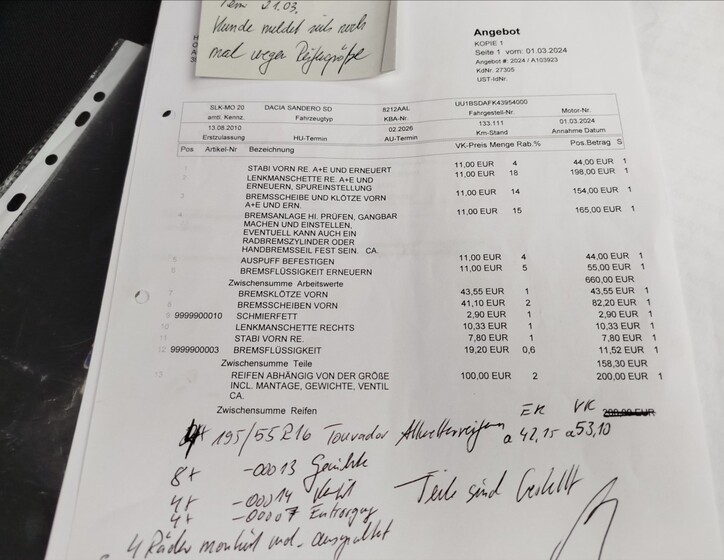 21.03.
Kunde meldet sich noch
mal wegen Reifengröße
Angebot
KOPIE 1
Seite 1 vom: 01.03.2024
Angebot #: 2024 / A103923
KdNr. 27305
UST-IdNr.
SLK-MO 20 DACIA SANDERO SD 8212AAL UU1BSDAFK43954000
amtl. Kennz. Fahrzeugtyp KBA-Nr. Fahrgestell-Nr. Motor-Nr.
13.08.2010 02.2026 133.111 01.03.2024
Erstzulassung HU-Termin AU-Termin Km-Stand Annahme Datum
Pos Artikel-Nr Bezeichnung VK-Preis Menge Rab.% Pos.Betrag S
1 STABI VORN RE. A+E UND ERNEUERT 11,00 EUR 4 44,00 EUR 1
2 LENKMANSCHETTE RE. A+E UND 11,00 EUR 18 198,00 EUR 1
ERNEUERN, SPUREINSTELLUNG
3 BREMSSCHEIBE UND KLÖTZE VORN 11,00 EUR 14 154,00 EUR 1
A+E UND ERN.
4 BREMSANLAGE HI. PRÜFEN, GANGBAR 11,00 EUR 15 165,00 EUR 1
MACHEN UND EINSTELLEN,
EVENTUELL KANN AUCH EIN
RADBREMSZYLINDER ODER
HANDBREMSSEIL FEST SEIN. CA.
5 AUSPUFF BEFESTIGEN 11,00 EUR 4 44,00 EUR 1
6 BREMSFLÜSSIGKEIT ERNEUERN 11,00 EUR 5 55,00 EUR 1
Zwischensumme Arbeitswerte 660,00 EUR
7 BREMSKLÖTZE VORN 43,55 EUR 1 43,55 EUR 1
8 BREMSSCHEIBEN VORN 41,10 EUR 2 82,20 EUR 1
9 9999900010 SCHMIERFETT 2,90 EUR 1 2,90 EUR 1
10 LENKMANSCHETTE RECHTS 10,33 EUR 1 10,33 EUR 1
11 STABI VORN RE. 7,80 EUR 1 7,80 EUR 1
12 9999900003 BREMSFLÜSSIGKEIT 19,20 EUR 0,6 11,52 EUR 1
Zwischensumme Teile 158,30 EUR
13 REIFEN ABHÄNGIG VON DER GRÖßE 100,00 EUR 2 200,00 EUR 1
INCL. MANTAGE, GEWICHTE, VENTIL
CA.
Zwischensumme Reifen 200,00 EUR
EK VK
4x 195/55R16 Tourador Allwetterreifen a 42,15 a 53,10
8x -00013 Gewichte
4x -00014 Ventil
4x -00007 Entsorgung
Teile sind bestellt
4 Räder montiert und ausgewuchtet